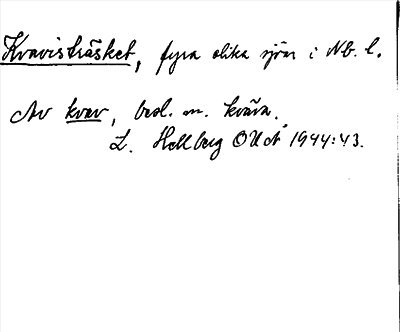 Kravisträsket, fyra olika sjöar i Nb. l.
Av krav, besl. m. kräva.
L. Hellberg OUÅ 1944:43.